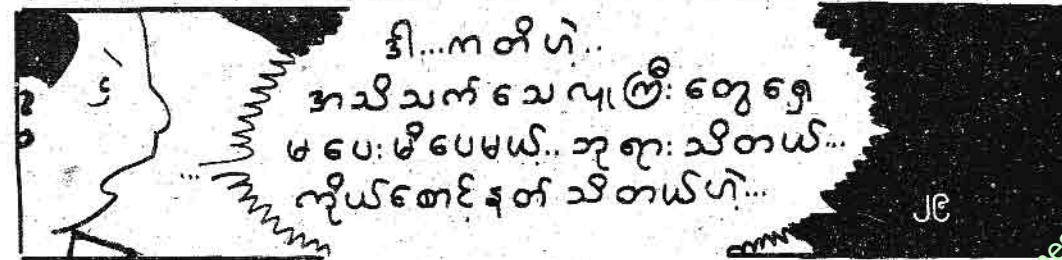 ဒါ...ကတိဟဲ့..
အသိသက်သေလူကြီးတွေရှေ့
မပေးမိပေမယ်..ဘုရားသိတယ်...
ကိုယ်စောင့်နတ်သိတယ်ဟဲ့...
...
၂၉